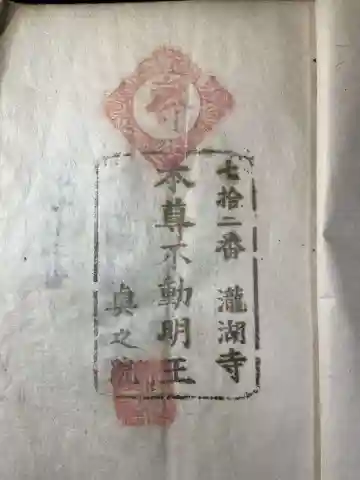 七拾二番 瀧湖寺
本尊不動明王
眞之院